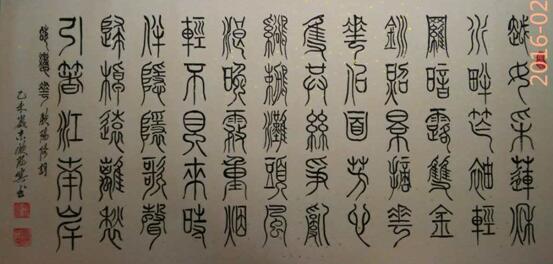 越女采蓮秋
水畔窄袖輕
羅暗露雙金
釧照景摘花
花似面芳心
隻共絲爭亂
鸂鶒灘頭風
浪晚霧重烟
輕不見來時
伴隱隱歌聲
歸棹遠離愁
引著江南岸
蝶戀花 歐陽修詞
乙未歲末 書
2016-02